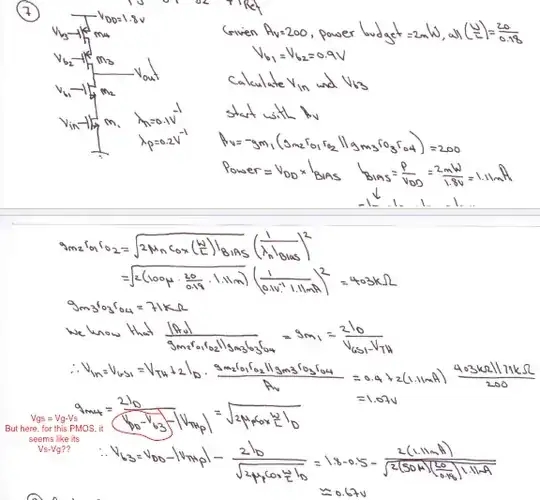 7
VDD=1.8V
Vb3 M4
Vb2 M3
Vout
Vb1 M2
Vin M1
λn=0.1V⁻¹
λp=0.2V⁻¹
Given Av=200, power budget=2mW, all (W/L)=20/0.18
Vb1=Vb2=0.9V
Calculate Vin and Vb3
start with Av
Av=-gm1(gm2ro1ro2||gm3ro3ro4)=200
Power=VDD×IBIAS IBIAS=P/VDD=2mW/1.8V=1.11mA
gm2ro1ro2=√(2μnCox(W/L)IBIAS)(1/(λnIBIAS))²
=√(2(100μ·20/0.18·1.11m))(1/(0.1V⁻¹·1.11mA))²=403kΩ
gm3ro3ro4=71kΩ
We know that |Av|/(gm2ro1ro2||gm3ro3ro4)=gm1=2ID/(VGS1-VTH)
∴Vin=VGS1=VTH+2ID·(gm2ro1ro2||gm3ro3ro4)/Av=0.4+2(1.11mA)(403kΩ||71kΩ)/200
=1.07V
gm4=2ID/(VDD-Vb3-|VTHp|)=√(2μpCox(W/L)ID)
Vgs = Vg-Vs
But here. for this PMOS, it
seems like its
Vs-Vg??
∴Vb3=VDD-|VTHp|-2ID/√(2μpCox(W/L)ID)=1.8-0.5-2(1.11mA)/√(2(50μ)(20/0.18)1.11mA)
≅0.67V